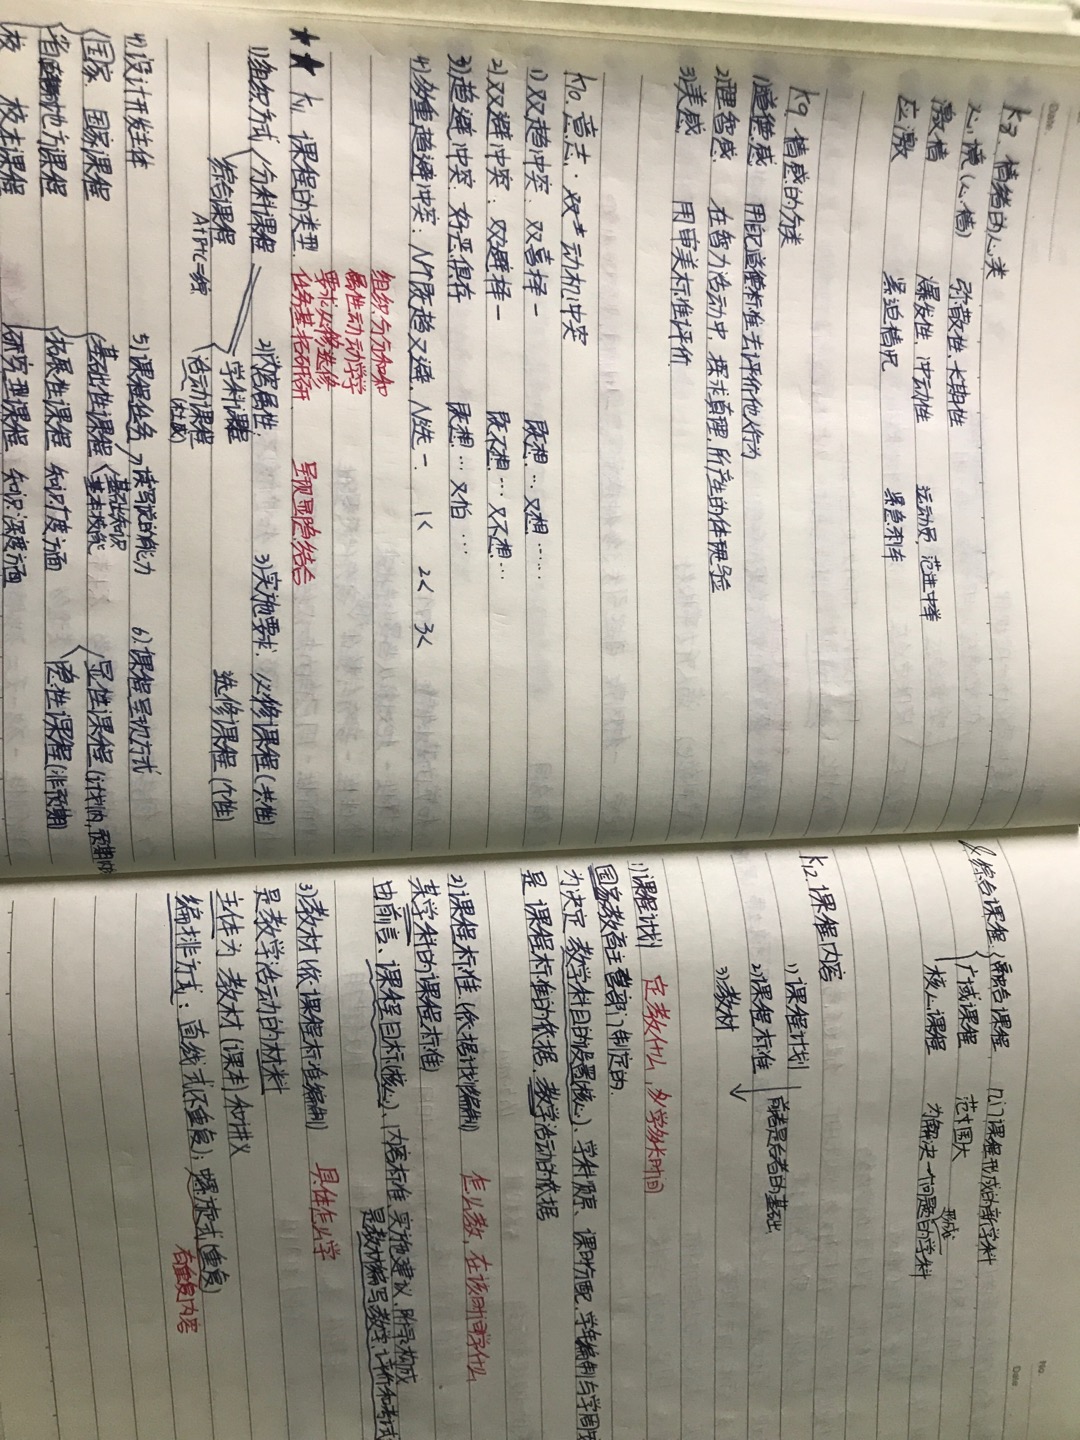 K8、情绪的分类
心境（心情） 弥散性、长期性
激情 爆发性，冲动性 运动员，范进中举
应激 紧迫情况 紧急刹车
K9、情感的分类
1)道德感 用道德标准去评价他人行为
2)理智感 在智力活动中，探求真理，所产生的体验
3)美感 用审美标准评价
K10、意志·双为动机冲突
1) 双趋冲突：双喜择一 既想…又想……
2) 双避冲突：双避择一 既不想…又不想…
3) 趋避冲突 好恶俱存 既想…又怕…
4) 多重趋避冲突：N个既趋又避，N选一 1< 2< 3<
组织分分加加
属性动动学学
要求必修选修
任务基拓研研
呈现显隐结合
★★ K11 课程的类型
1)组织方式 分科课程 2)内容属性: 3)实施要求: 必修课程(共性)
综合课程 学科课程 选修课程(个性)
A+P+C=综 活动课程
4)设计开发主体 5)课程任务 读写说的能力 6)课程呈现方式
国家 国家课程 基础性课程 基础知识 基本技能 显性课程(计划内,预期的)
地方课程 拓展性课程 知识广度方面 隐性课程(非预期)
校 校本课程 研究型课程 知识深度方面
综合课程 融合课程 几门课程形成的新学科
广域课程 范围大
核心课程 为解决一个问题形成的学科
K12.课程内容
1)课程计划
2)课程标准 前者是后者的基础
3)教材
1)课程计划 定教什么,多学多长时间
国家教育主管部门制定的.
为决定 教学科目的设置(核心)、学科顺序、课时分配、学年编制与学周
是 课程标准的依据,教学活动的依据
2)课程标准.(依据计划编制) 怎么教,在该时间学什么
某学科的课程标准)
由前言、课程目标(核心)、内容标准 实施建议、附录构成
是教材编写教学、评价和考试
3)教材(依课程标准编制) 具体怎么学
是教学活动的材料
主体为 教材(课本)和讲义
编排方式：直线式(不重复)；螺旋式(重复)
有重复内容